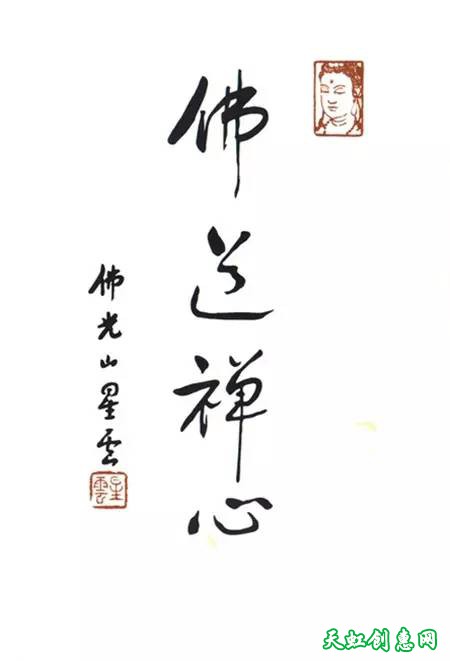 佛道禅心
佛光山星雲
星雲
天虹创意网